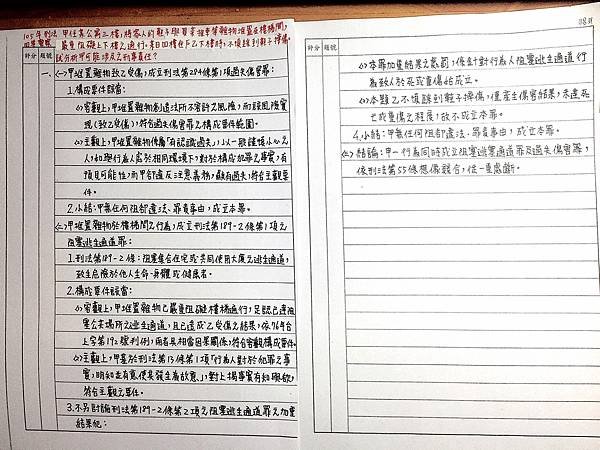 105年刑法 甲住某公寓二樓,將家人的鞋子與自行車等雜物堆置在樓梯間,
嚴重阻礙上下樓之通行。某日四樓住戶乙下樓時,不慎踩到鞋子摔傷。
試分析甲可能涉及之刑事責任?
計分 題號
一、(一)甲堆置雜物致乙受傷,成立刑法第284條第1項過失傷害罪:
1.構成要件該當:
(1)客觀上,甲堆置雜物製造法所不容許之風險,而該風險實
現(致乙受傷),符合過失傷害罪之構成要件範圍。
(2)主觀上,甲堆置雜物係屬「有認識過失」,以一般謹慎小心之
人,如與行為人處於相同環境下,對於構成犯罪之事實,有
預見可能性,而甲卻違反注意義務,顯有過失,符合主觀要
件。
2.小結:甲無任何阻卻違法、罪責事由,成立本罪。
(二)甲堆置雜物於樓梯間之行為,成立刑法第189-2條第1項之
阻塞逃生通道罪:
1.刑法第189-2條:阻塞集合住宅或共同使用大廈之逃生通道,
致生危險於他人生命、身體或健康者。
2.構成要件該當:
(1)客觀上,甲堆置雜物已嚴重阻礙樓梯通行,足認已達阻
塞公共場所之逃生通道,且已造成乙受傷之結果,依76年台
上字第192號判例,兩者具相當因果關係,符合客觀構成要件。
(2)主觀上,甲基於刑法第13條第1項「行為人對於犯罪之事
實,明知並有意使其發生為故意」,對上揭事實有知與欲,
符合主觀之要件。
3.不另討論刑法第189-2條第2項之阻塞逃生通道罪之加重
結果犯:
計分 題號
(1)本罪加重結果之處罰,係針對行為人阻塞逃生通道行
為致人於死或重傷始成立。
(2)本題乙不慎踩到鞋子摔傷,僅產生傷害結果,未達死
亡或重傷之程度,故不成立本罪。
4.小結:甲無任何阻卻違法、罪責事由,成立本罪。
(三)結論:甲一行為同時成立阻塞逃生通道罪及過失傷害罪,
依刑法第55條想像競合,從一重處斷。